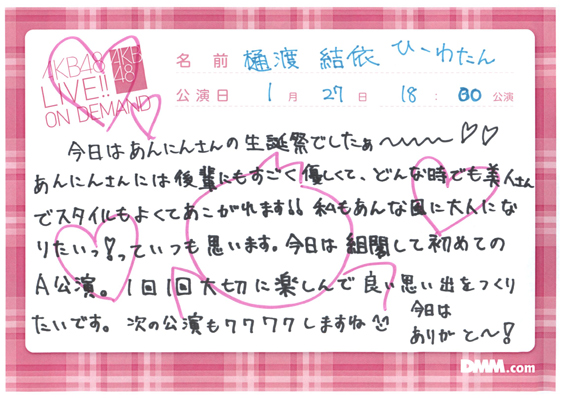 AKB48
LIVE!!
ON DEMAND
AKB
48
名 前 樋渡 結依 ひーわたん
公演日 1 月 27 日 18 : 00 公演
今日はあんにんさんの生誕祭でしたぁ〜
あんにんさんには後輩にもすごく優しくて、どんな時でも美人さん
でスタイルもよくてあこがれます!! 私もあんな風に大人にな
りたいっ!っていつも思います。今日は組閣して初めての
A公演。1回1回大切に楽しんで良い思い出をつくり
たいです。次の公演もワクワクしますね
今日は
ありがと〜!
DMM.com